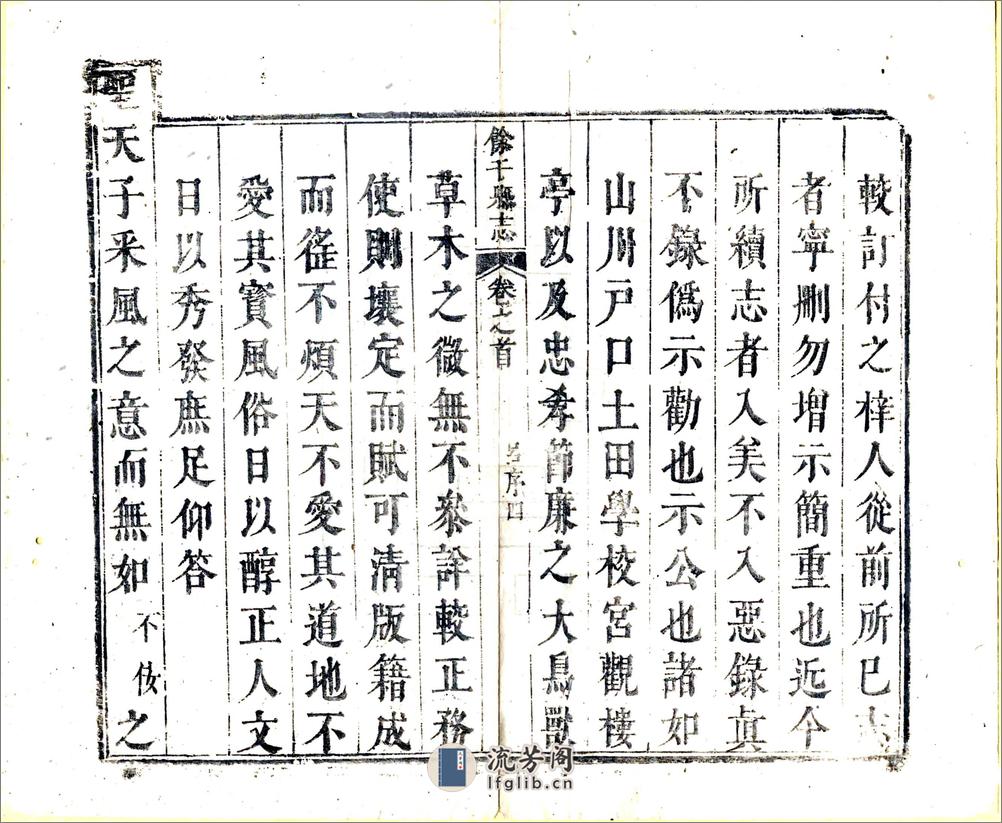 較訂付之梓人從前所已志
者寧刪勿增示簡重也近今
所續志者入美不入惡錄眞
不錄僞示勸也示公也諸如
山川戸口土田學校宮觀樓
亭以及忠孝節廉之大鳥獸
餘干縣志 卷之首 序四
草木之微無不叅詮較正務
使則壤定而賦可清版籍成
而徭不煩天不愛其道地不
愛其寳風俗日以醇正人文
日以秀發庶足仰答
聖天子采風之意而無如不佞之
流芳阁
lfglib.cn